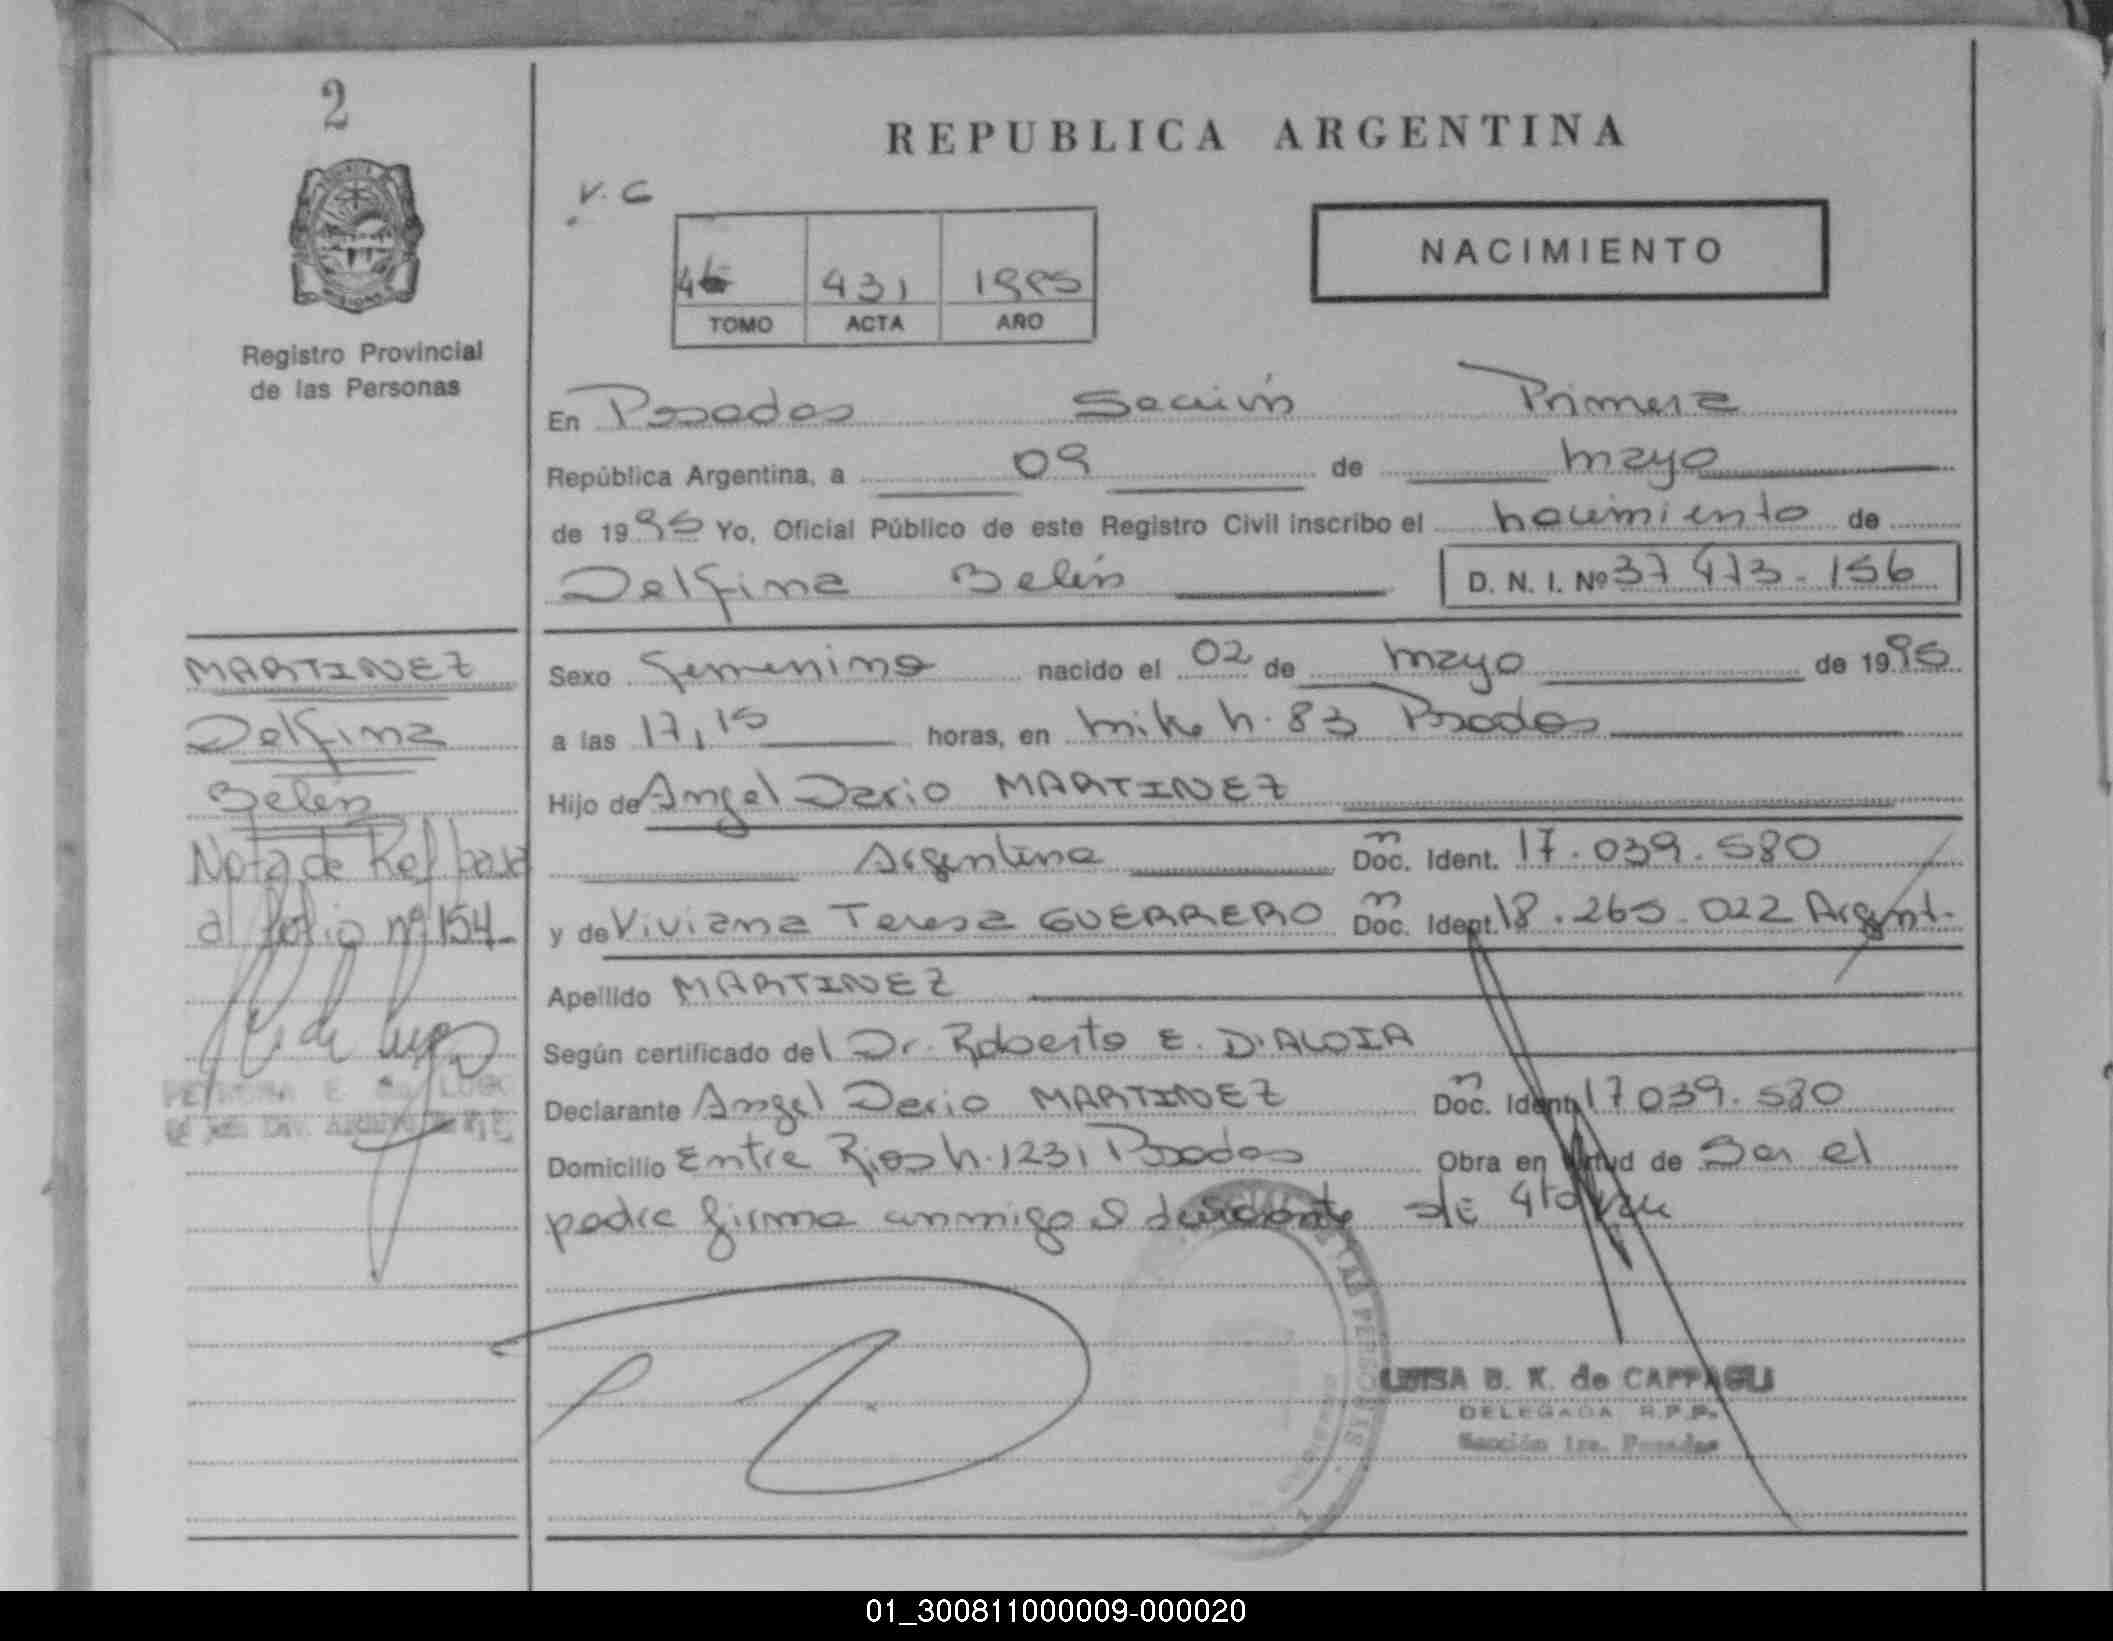 2
REPUBLICA ARGENTINA
V. C
NACIMIENTO
431 1995
TOMO ACTA AÑO
Registro Provincial
de las Personas
En Posadas Sección Primera
República Argentina, a 09 de mayo
de 1995 Yo, Oficial Público de este Registro Civil inscribo el nacimiento de
Delfina Belén D. N. I. Nº 37 473-156
MARTINEZ
Delfina
Belén
Nota de Ref pasa
al folio nº 154-
Sexo femenino nacido el 02 de mayo de 1995
a las 17,15 horas, en n. 83 Posadas
Hijo de Angel Dario MARTINEZ
Argentina Doc. Ident. 17.039.580
y de Viviana Teresa GUERRERO Doc. Ident. 18.265.022 Argent.
Apellido MARTINEZ
Según certificado del Dr. Roberto E. D'ALOIA
Declarante Angel Dario MARTINEZ Doc. Ident. 17 039.580
Domicilio Entre Rios n. 1231 Posadas Obra en virtud de Ser el
padre firma conmigo el declarante
LUISA B. K. de CAPPAGLI
DELEGADA R.P.P.
Sección 1ra. Posadas
01_300811000009-000020